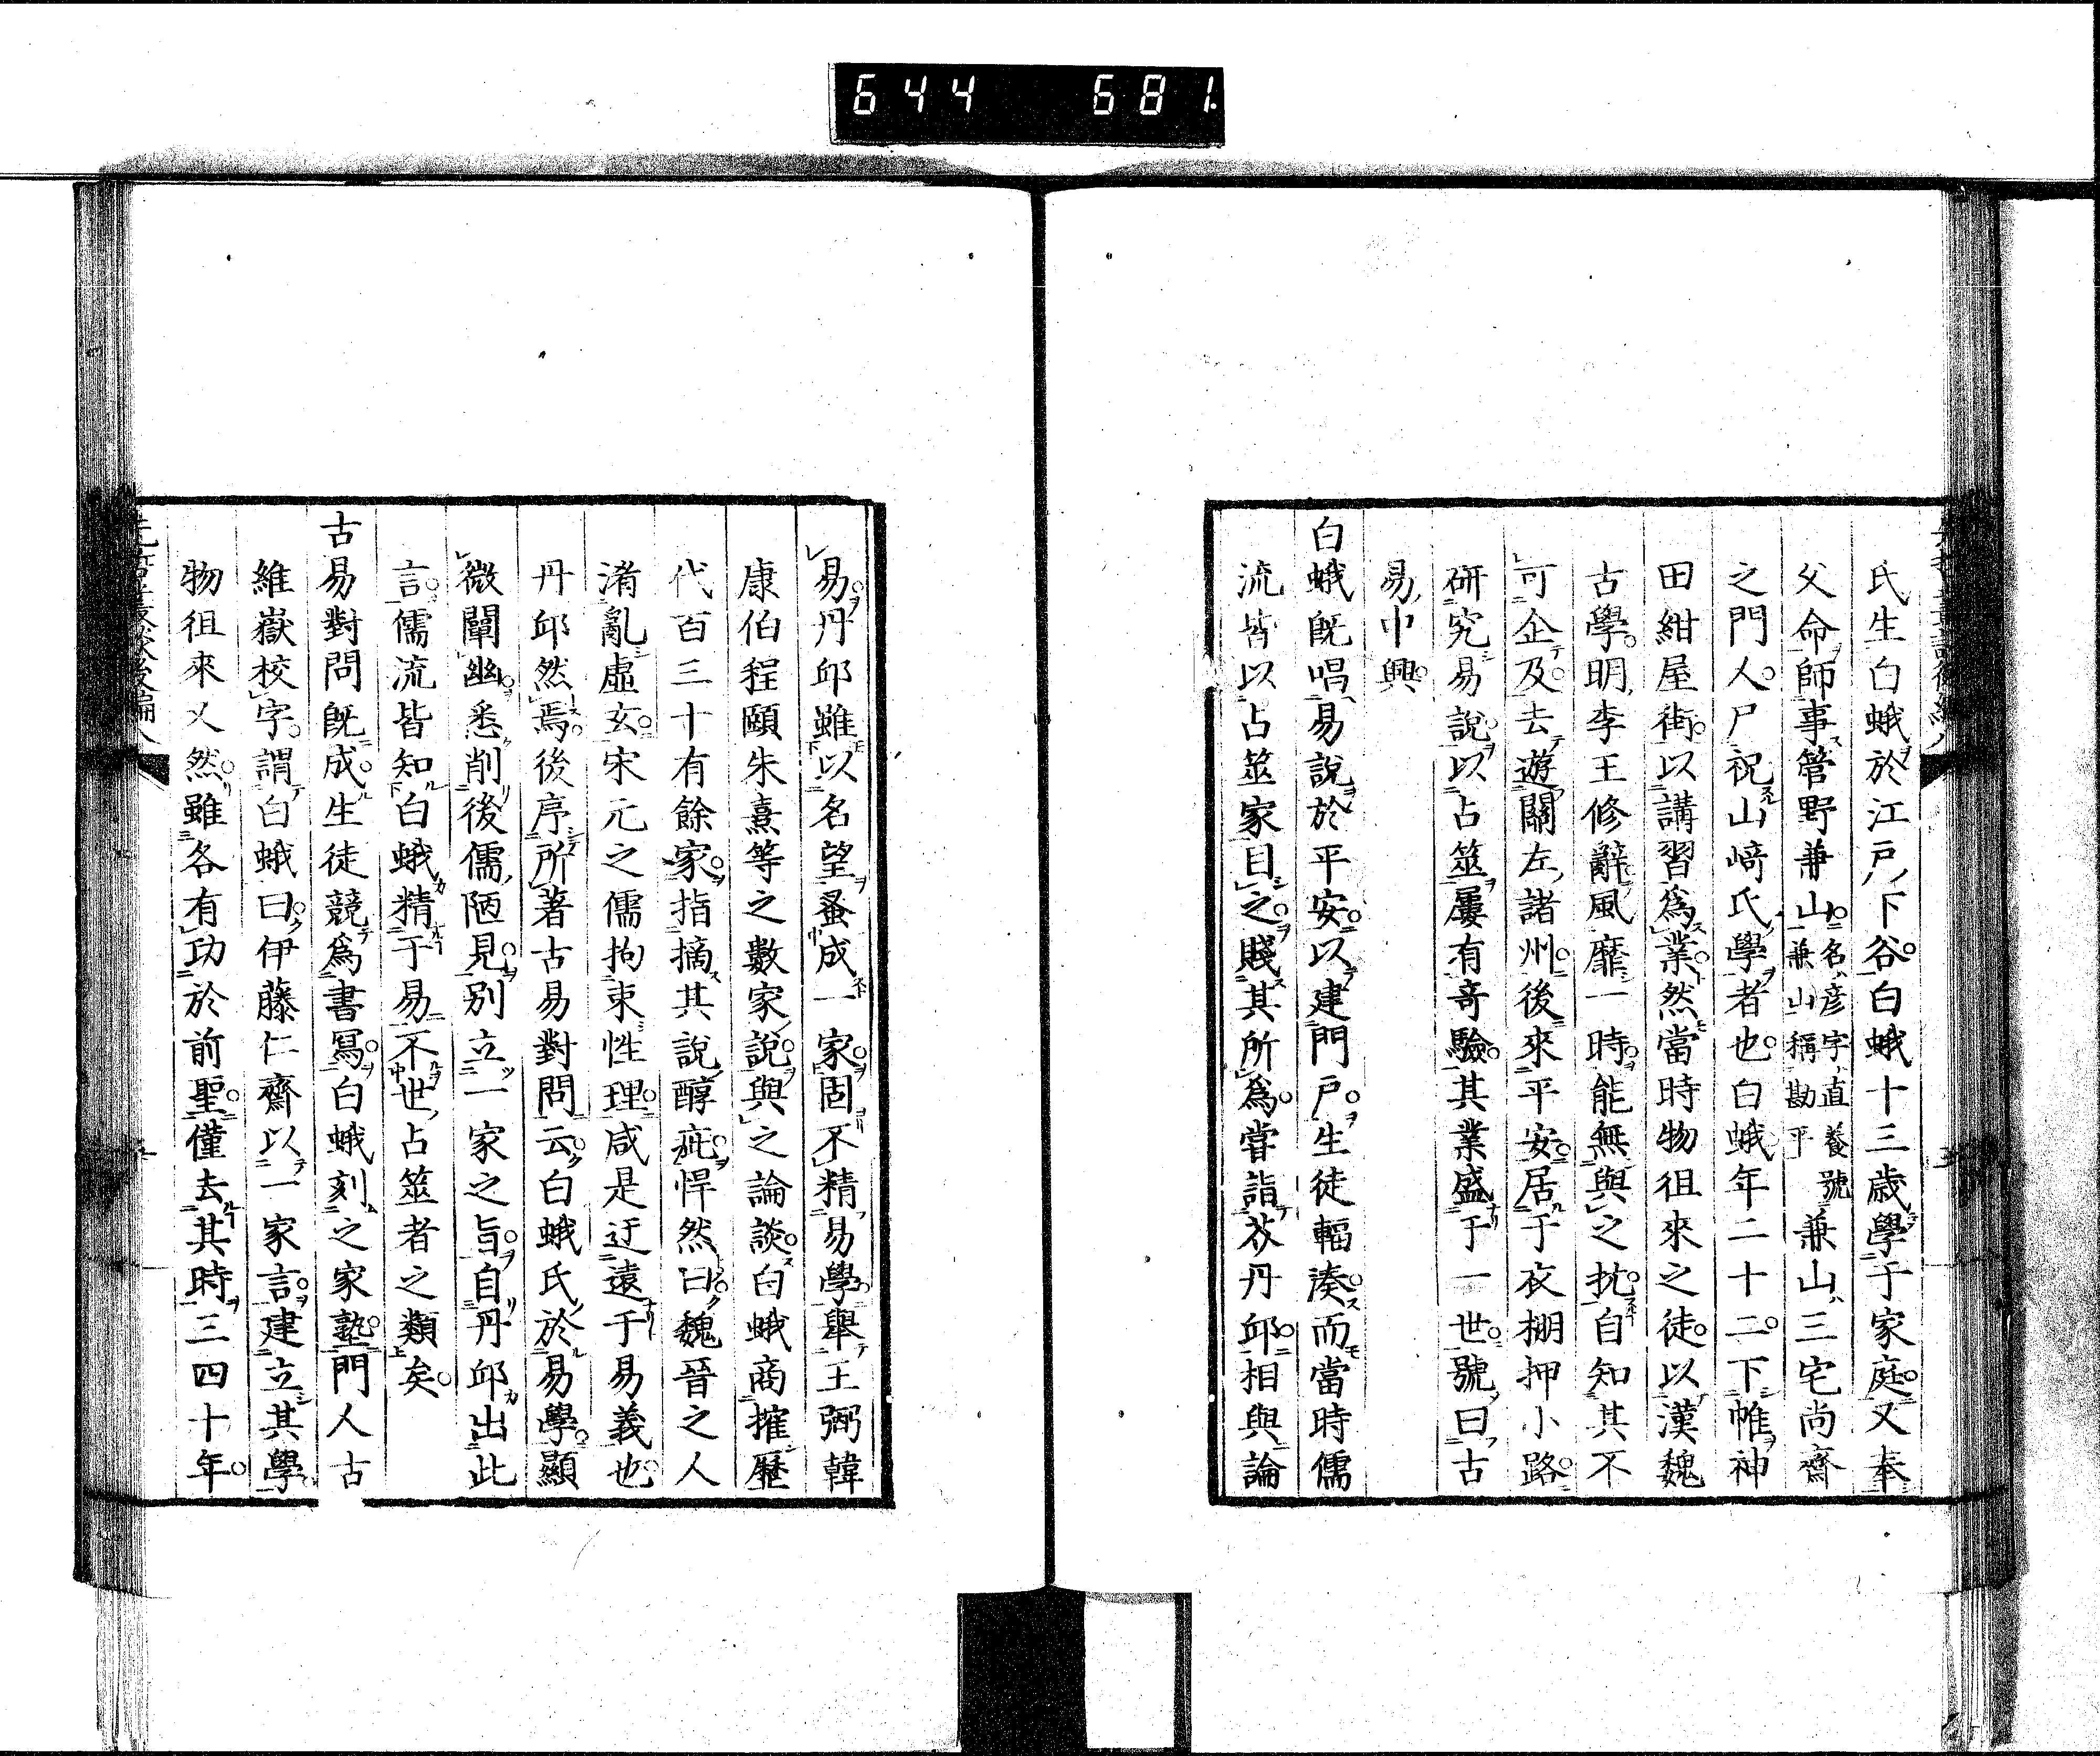 644 681
氏生白蛾於江戸下谷白蛾十三歳學于家庭又奉
父命師事管野兼山名彦字直養號兼山稱勘平兼山三宅尚齋
之門人尸祝山﨑氏學者也白蛾年二十二下帷神
田紺屋街以講習爲業然當時物徂來之徒以漢魏
古學明李王修辭風靡一時能無與之抗自知其不
可企及去遊關左諸州後來平安居于衣棚押小路
研究易説以占筮屢有奇驗其業盛于一世號曰古
易中興
白蛾既唱易説於平安以建門戸生徒輻湊而當時儒
流皆以占筮家目之賤其所爲嘗詣芥丹邱相與論
易丹邱雖以名望蚤成一家固不精易學舉王弼韓
康伯程頤朱熹等之數家説與之論談白蛾商搉歷
代百三十有餘家指摘其説醇疵悍然曰魏晉之人
淆亂虛玄宋元之儒拘束性理咸是迂遠于易義也
丹邱然焉後序所著古易對問云白蛾氏於易學顯
微闡幽悉削後儒陋見別立一家之旨自丹邱出此
言儒流皆知白蛾精于易不世占筮者之類矣
古易對問既成生徒競爲書冩白蛾刻之家塾門人古
維嶽校字謂白蛾曰伊藤仁齋以一家言建立其學
物徂來乂然雖各有功於前聖僅去其時三四十年